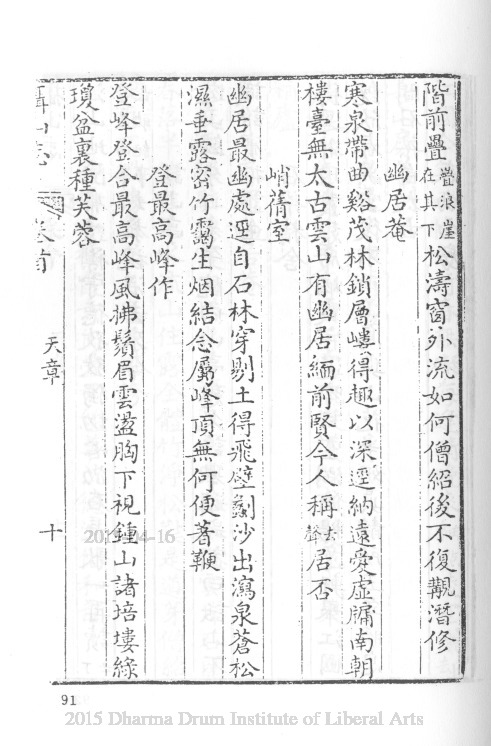 階前疊疊浪崖在其下松濤窗外流如何僧紹後不復覯潛修
幽居菴
寒泉帶曲谿茂林鎖層巘得趣以深逕納遠受虛牖南朝
樓臺無太古雲山有幽居緬前賢今人稱去聲居否
峭蒨室
幽居最幽處逕自石林穿剔土得飛壁劚沙出瀉泉蒼松
濕垂露密竹靄生烟結念屬峰頂無何便著鞭
登最高峰作
登峰登合最高峰風拂鬚眉雲盪胸下視鍾山諸培塿綠
瓊盆裏種芙蓉
攝山志
卷首
天章
十
2015-04-16
91
2015 Dharma Drum Institute of Liberal Arts